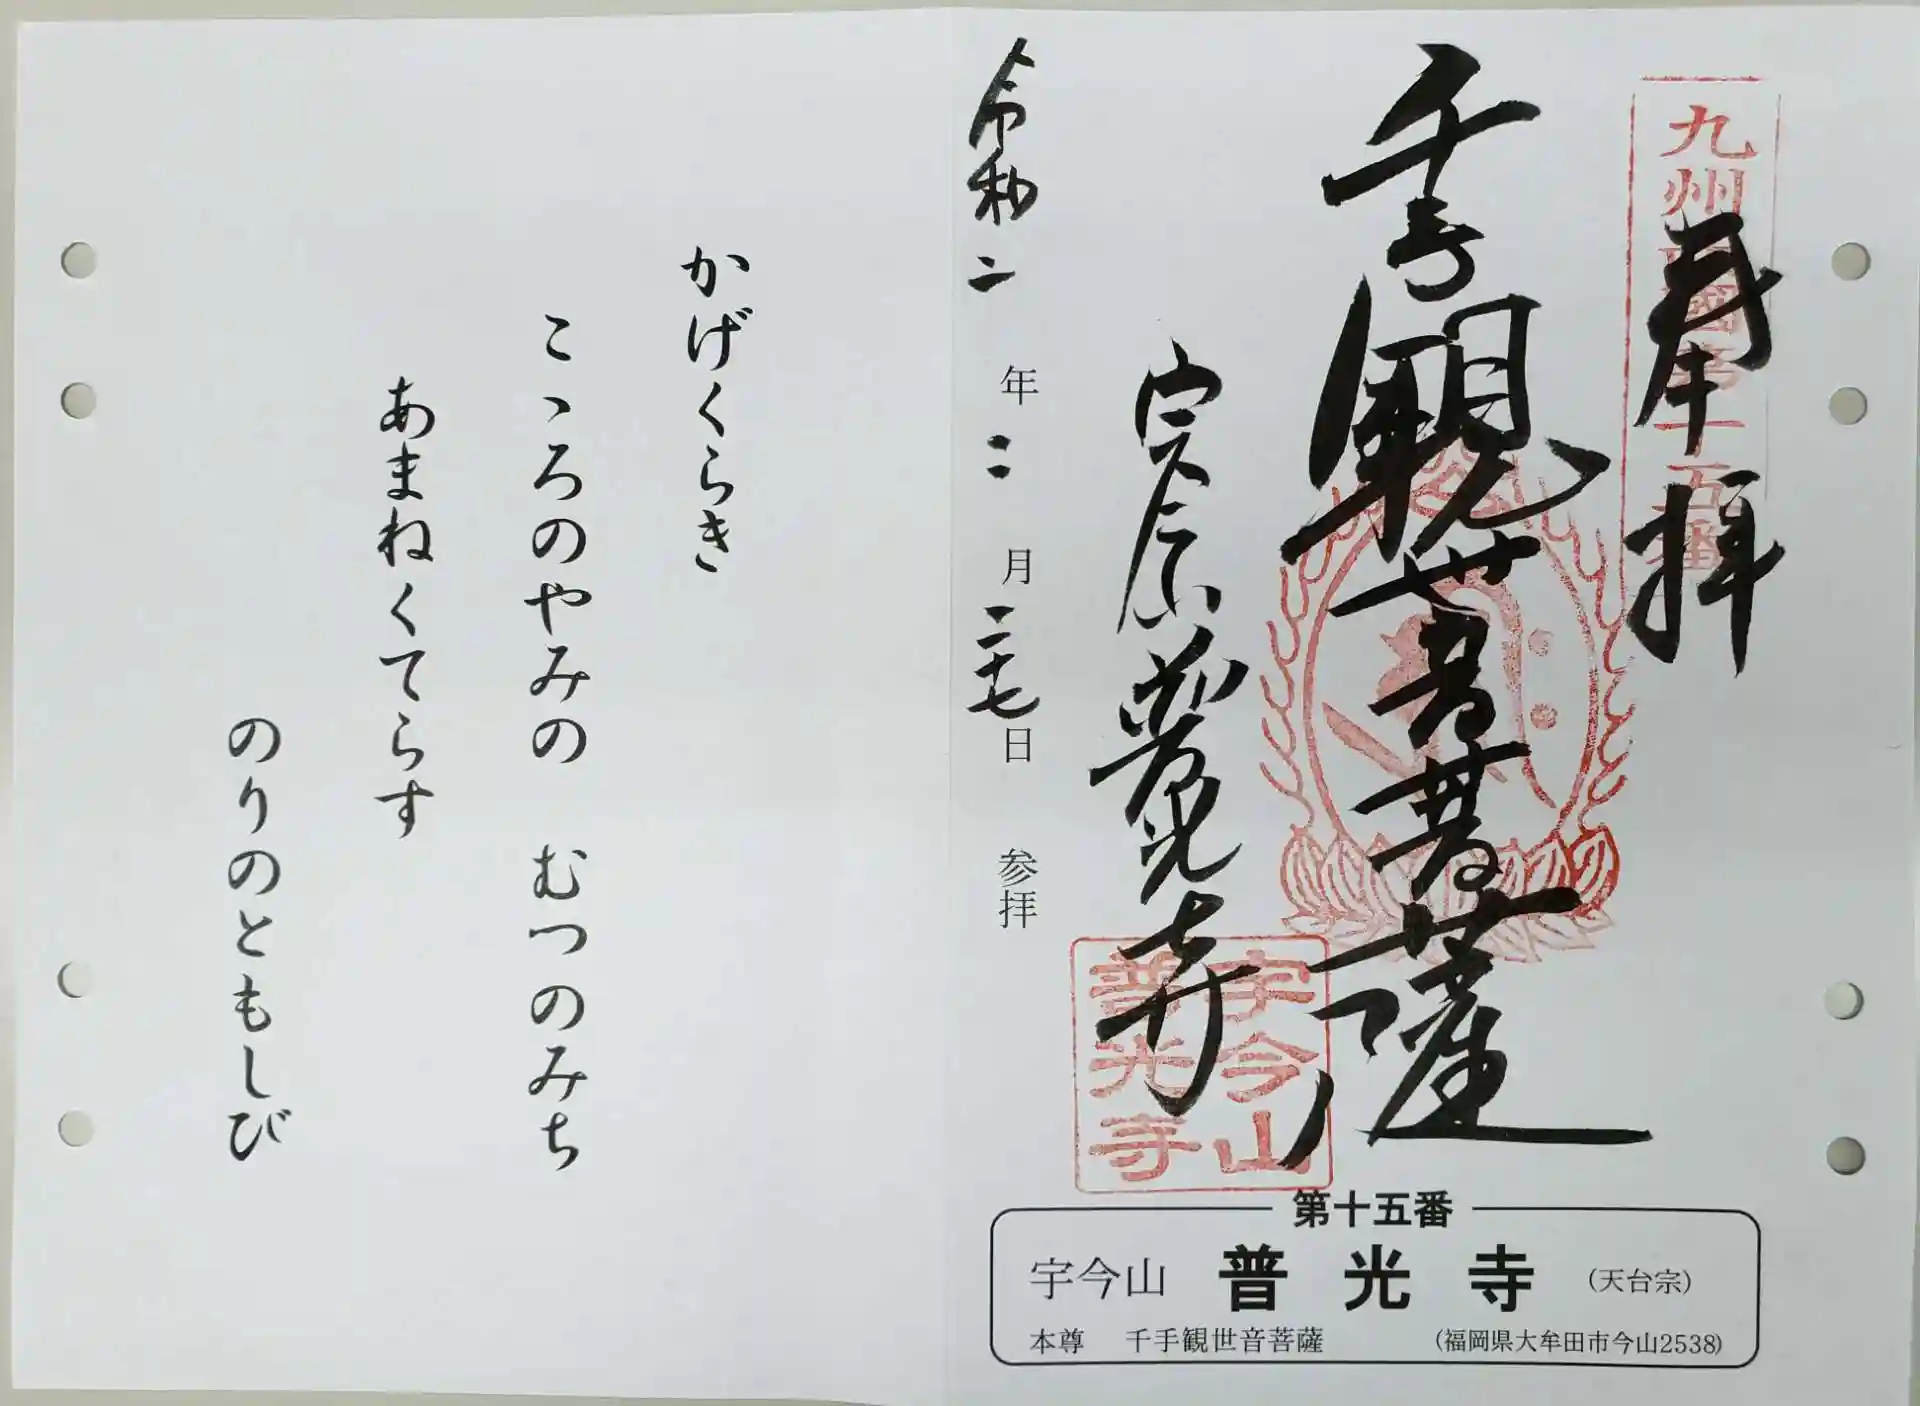 九州西國第十五番
奉拝
千手観世音菩薩
宇今山 普光寺
宇今山
普光寺
令和二年二月二十七日 参拝
第十五番
宇今山 普光寺 (天台宗)
本尊 千手観世音菩薩 (福岡県大牟田市今山2538)
かげくらき
こゝろのやみの むつのみち
あまねくてらす
のりのともしび